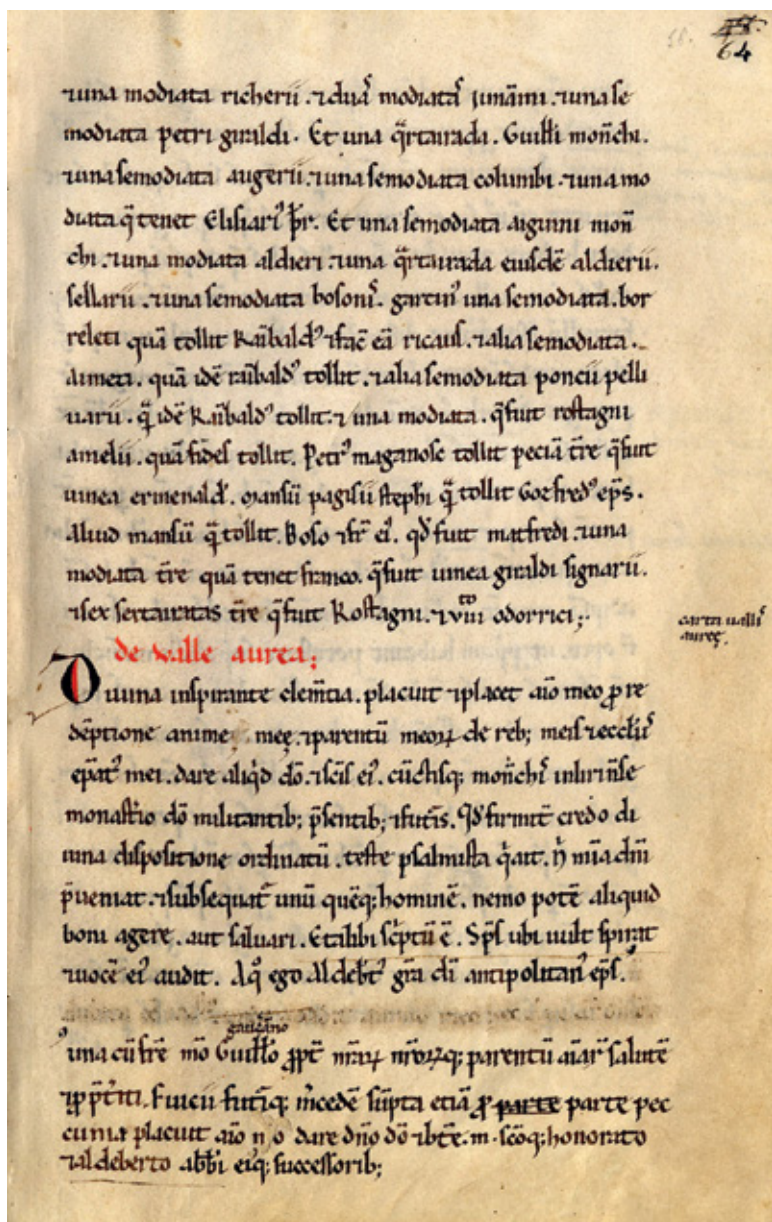 64
⁊ una modiata richerii . ⁊ duaꝰ modiataꝰ . ⁊ una se
modiata petri giraldi . Et una q̄rtairada . Guill̄i mon̄chi .
⁊ una semodiata augerii . ⁊ una semodiata columbi . ⁊ una mo
diata q̄ tenet Elisiariꝰ p̄br . Et una semodiata aiguini mon̄
chi . ⁊ una modiata aldieri . ⁊ una q̄rtairada eiusdē aldierii .
sellarii . ⁊ una semodiata bosoniꝰ . garciniꝰ una semodiata . bor
releti quā tollit Raībaldꝰ ⁊ fac̄ eā ricaus . ⁊ alia semodiata .
aimeti . quā idē raībaldꝰ tollit . ⁊ alia semodiata poncii pelli
uarii . q̄ idē Raībaldꝰ tollit . ⁊ una modiata . q̄ fuit rostagni
amelii . quā fideł tollit . Petrꝰ maganosc tollit peciā t̄re q̄ fuit
uinea ermenaldꝰ . mansū pagisii steph̄i q̄ tollit Goffredꝰ ep̄s .
Aliud mansū q̄ tollit . Boso ⁊ fr̄ eiꝰ . qd̄ fuit matfredi . ⁊ una
modiata t̄re quā tenet franco . q̄ fuit uinea giraldi signarii .
⁊ sex sertairatas t̄re q̄ fuit Rostagni . ⁊ viiiᵗᵒ odorrici ;.
carta ualliꝰ
aureę .
de Valle aurea ;
Diuina inspirante clem̄tia . placuit ⁊ placet aīo meo ꝓ re
dēptione anime meę . ⁊ parentū meoꝝ de reb; meis ⁊ eccl̄iꝰ
ep̄atꝰ mei . dare aliq̇d dō . ⁊ sc̄is eiꝰ . cūctisq; mon̄chiꝰ in lirinēse
monast̄io dō militantib; p̄sentib; ⁊ futīs . Qd̄ firmit̄ credo di
uina dispositione ordinatū . teste psalmista q̇ ait . n̄ mīa dn̄i
p̄ueniat . ⁊ subsequat᷑ unū quēq; hominē . nemo potē aliquid
boni agere . aut saluari . Et alibi sc̄ptū ē . Sp̄s ubi uult spirat
⁊ uocē eiꝰ audit . Aq̇ ego Aldeb̄tꝰ gr̄a dī antipolitanꝰ ep̄s .
gauceꝛāno
una cū fr̄e m̄o Guill̄o ꝓpt̄ nr̄aꝝ nr̄oꝝq; parentū aīaꝝ salutē
futīq; m̄cedē sūpta etiā ꝓ parte parte pec
cunia placuit aīo n̄o dare dn̄o dō ⁊ bt̄ē . m . sc̄oq; honorato
⁊ aldeberto abb̄i eiꝰq; successorib;